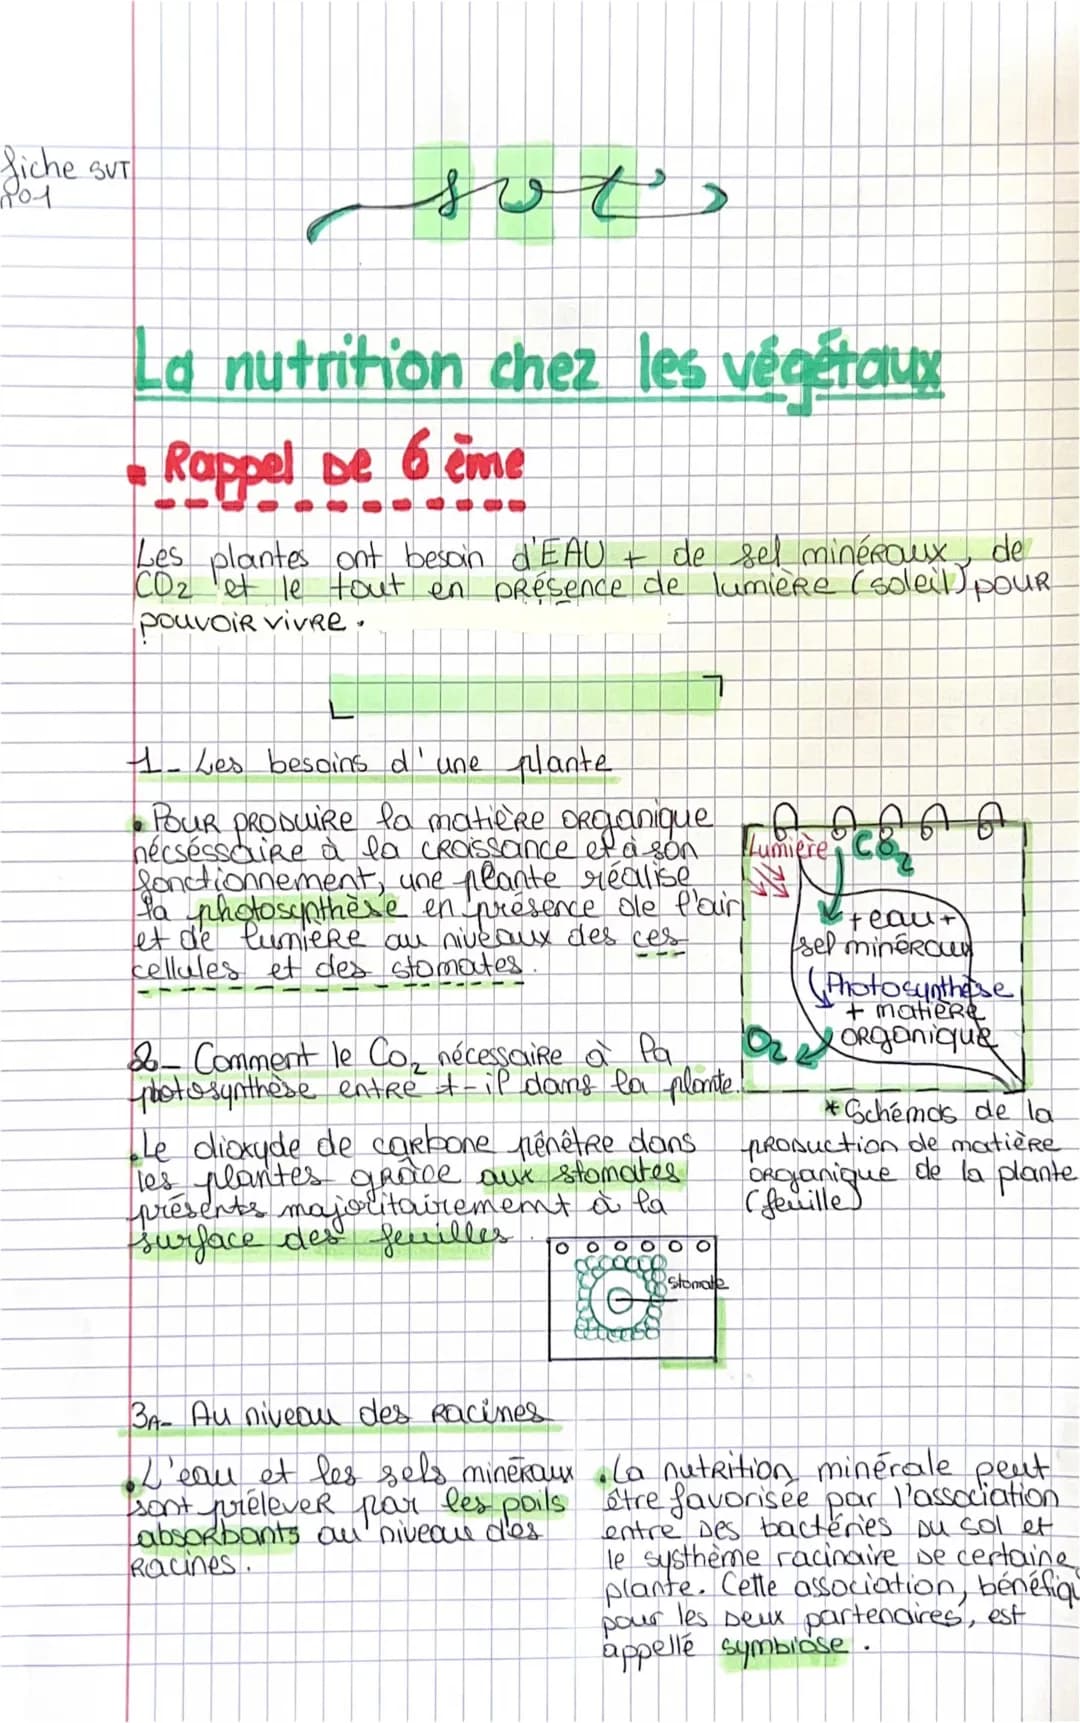 fiche SVT
n°01
svt
La nutrition chez les végétaux
Rappel De 6 ème
Les plantes ont besoin d'EAU + de sel minéraux, de
CO2 et le tout en présence de lumière (soleil) pour
pouvoir vivre.
1- Les besoins d'une plante
• Pour produire la matière organique
nécséssaire à la croissance et à son
fonctionnement, une plante réalise
la photosynthèse en présence de l'air
et de lumière au niveaux des ces
cellules et des stomates.
Lumière CO2
+ eau +
sel minéraux
Photosynthèse
+ matière
organique
O2
* Schémas de la
production de matière
organique de la plante
(feuille)
2- Comment le CO2 nécessaire à la
photosynthèse entre t-il dans la plante.
• Le dioxyde de carbone pénêtre dans
les plantes grâce aux stomates
présents majoritairement à la
surface des feuilles.
Stomate
3A- Au niveau des racines
• L'eau et les sels minéraux
sont prélever par les poils
absorbants au niveau des
racines.
• La nutrition minérale peut
être favorisée par l'association
entre des bactéries du sol et
le systhème racinaire de certaine
plante. Cette association, bénéfiqu
pour les deux partenaires, est
appellé symbiose.